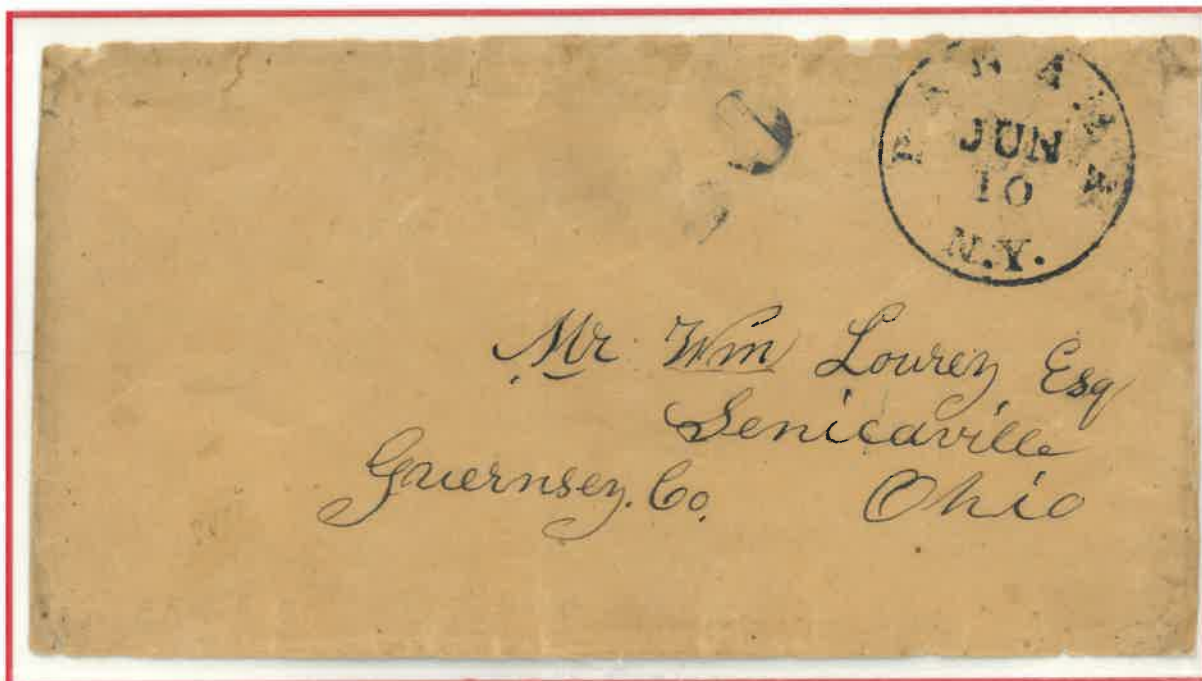 PANAMA
JUN
10
N.Y.
Mr Wm Lowrey Esq
Senicaville
Guernsey. Co. Ohio